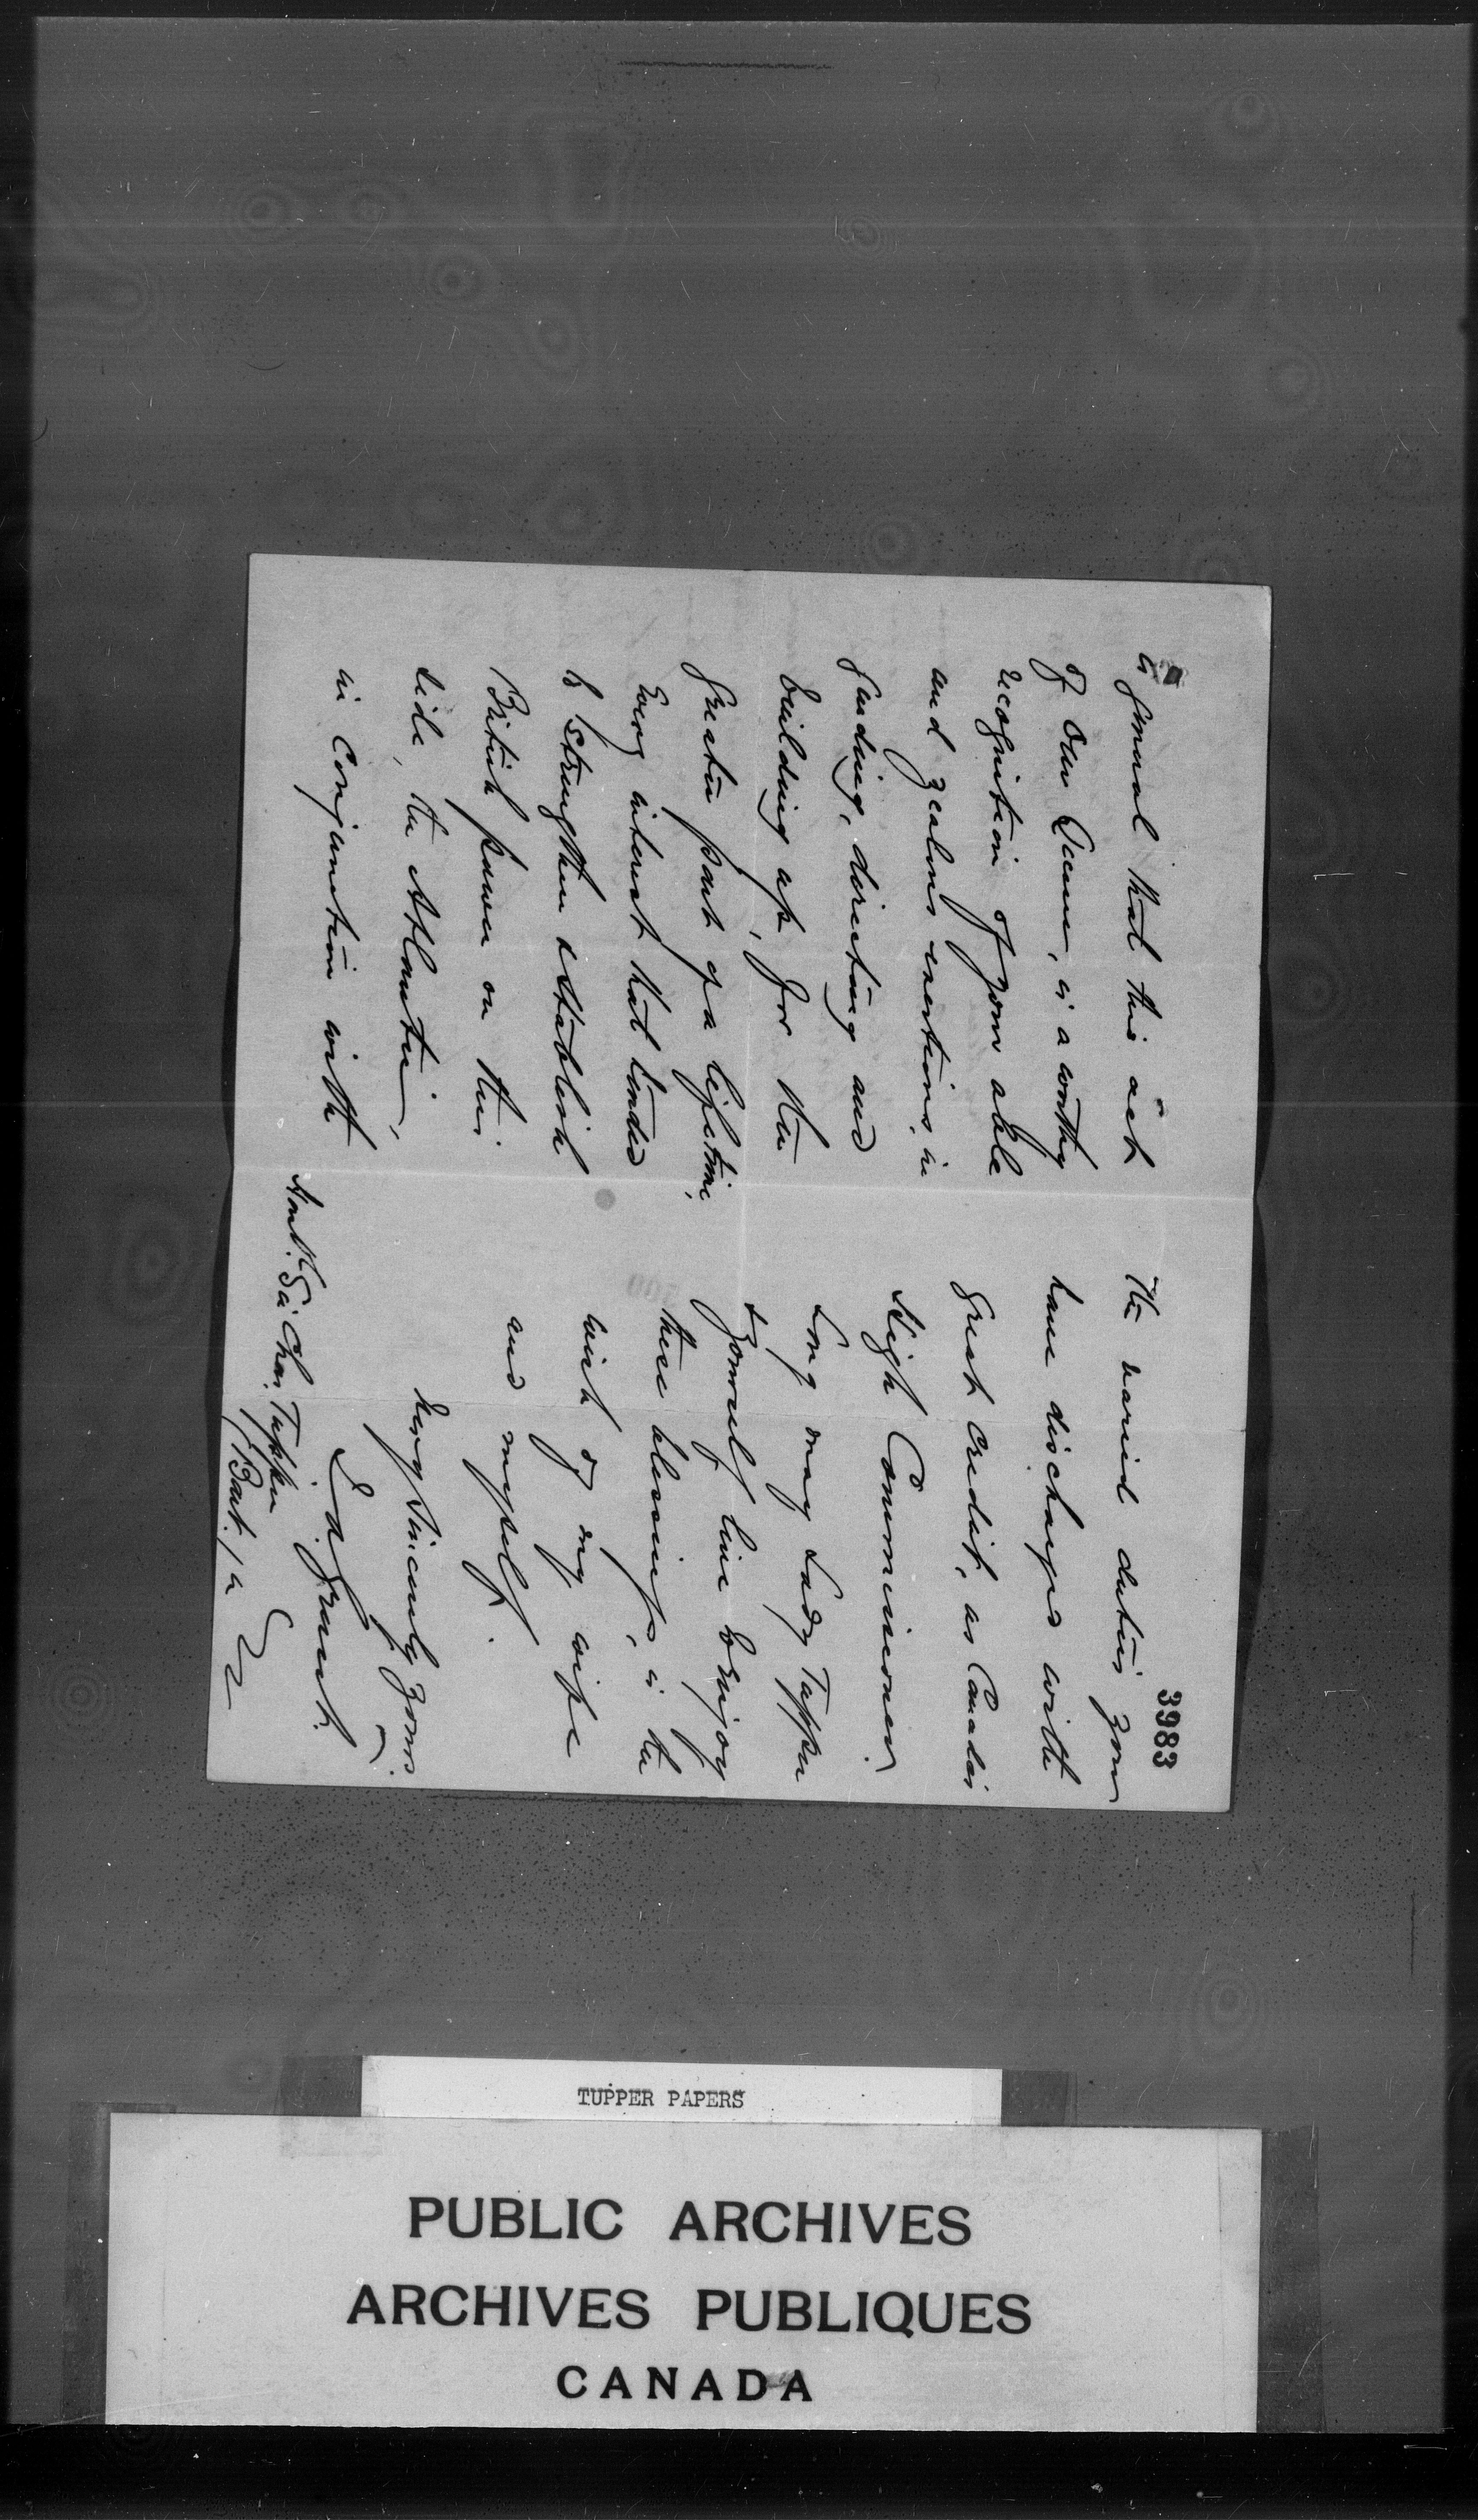 is general that this act
of our Queen, is a worthy
recognition of your able
and zealous exertions, in
guiding, directing and
building up, for the
greater part of a lifetime,
every interest that tended
to strengthen & establish
British power on this
side, the Atlantic,
in conjunction with
3983
the varied duties you
have discharged with
great credit, as Canada's
High Commissioner.
Long may Lady Tupper
& yourself live & enjoy
these blessings, is the
wish of my wife
and myself.
Very sincerely yours
Grant
Honbl. Sir Chas. Tupper
Bart.
TUPPER PAPERS
PUBLIC ARCHIVES
ARCHIVES PUBLIQUES
CANADA